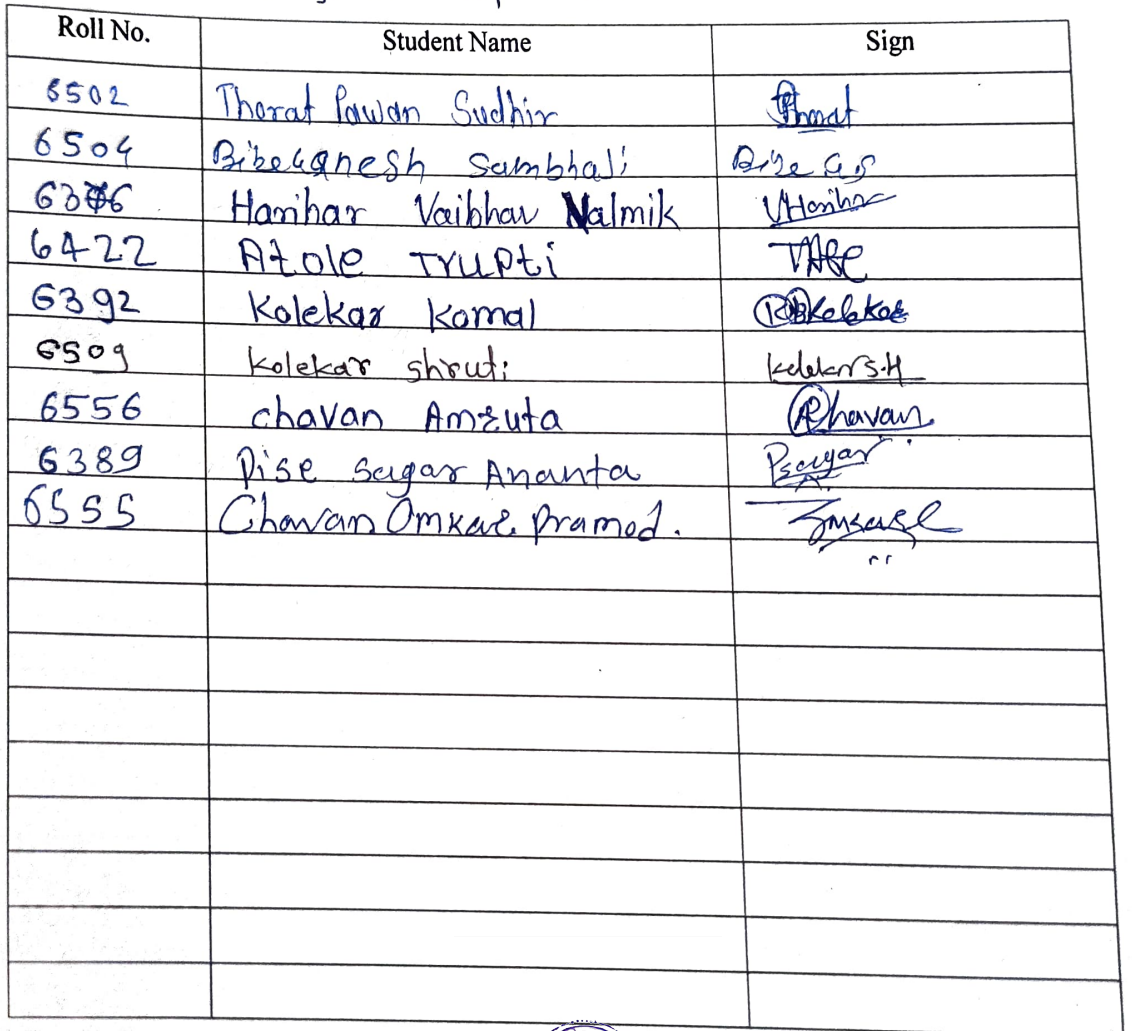 Roll No. Student Name Sign
6502 Thorat Pawan Sudhir Thorat
6504 Bibe Ganesh Sambhaji Bibe GS
6376 Harihar Vaibhav Valmik VHarihar
6422 Atole Trupti
6392 Kolekar Komal Kolekar
6509 Kolekar shruti Kolekar S.H
6556 chavan Amruta Chavan
6389 Dise sagar Ananta Dsagar
6555 Chavan Omkar Pramod.